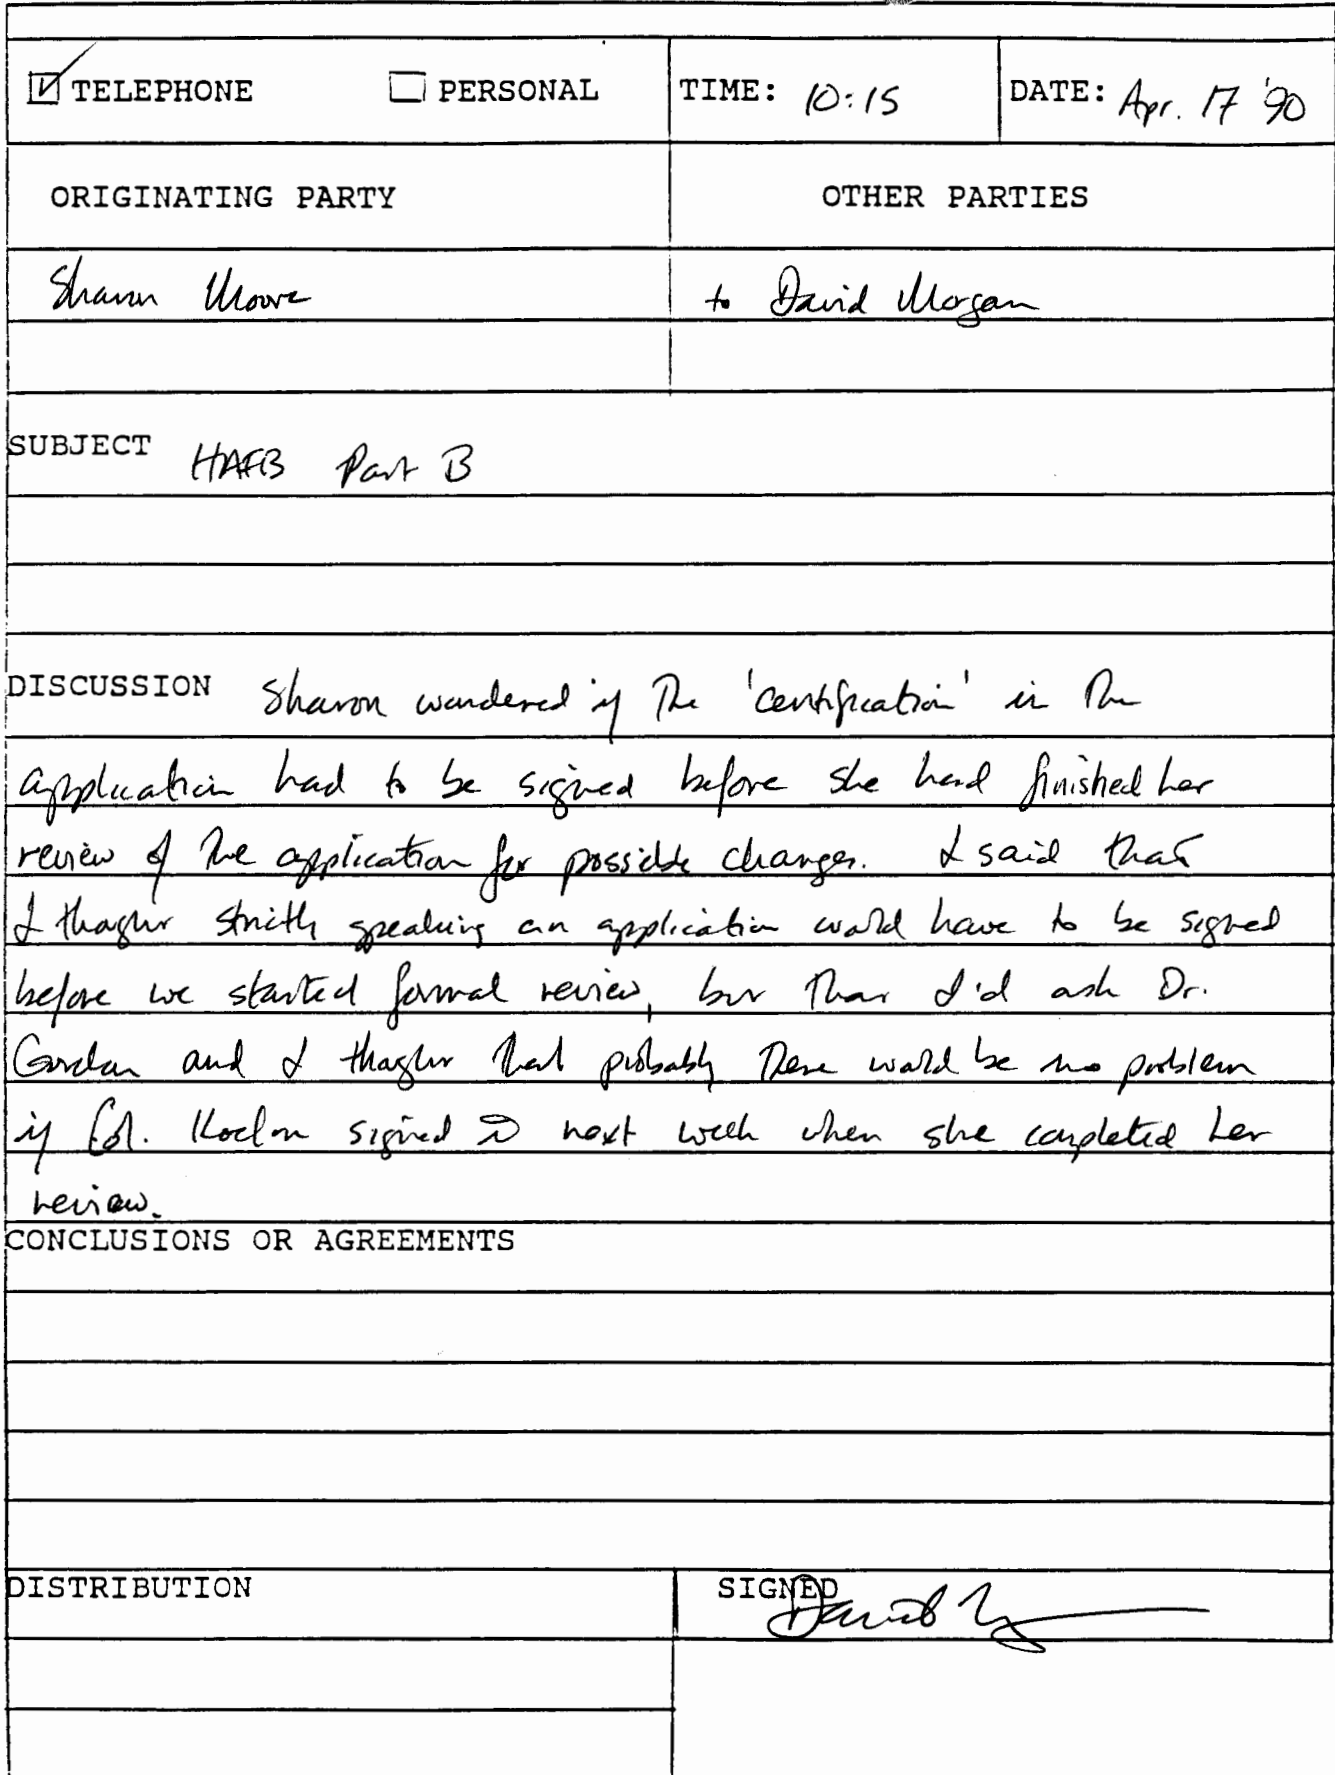 TELEPHONE PERSONAL TIME: 10:15 DATE: Apr. 17 '90
ORIGINATING PARTY OTHER PARTIES
Sharon Moore to David Morgan
SUBJECT HAFB Part B
DISCUSSION Sharon wondered if the 'certification' in the
application had to be signed before she had finished her
review of the application for possible changes. I said that
I thought strictly speaking an application would have to be signed
before we started formal review, but that I'd ask Dr.
Gordon and I thought that probably there would be no problem
if Col. signed it next week when she completed her
review.
CONCLUSIONS OR AGREEMENTS
DISTRIBUTION SIGNED David